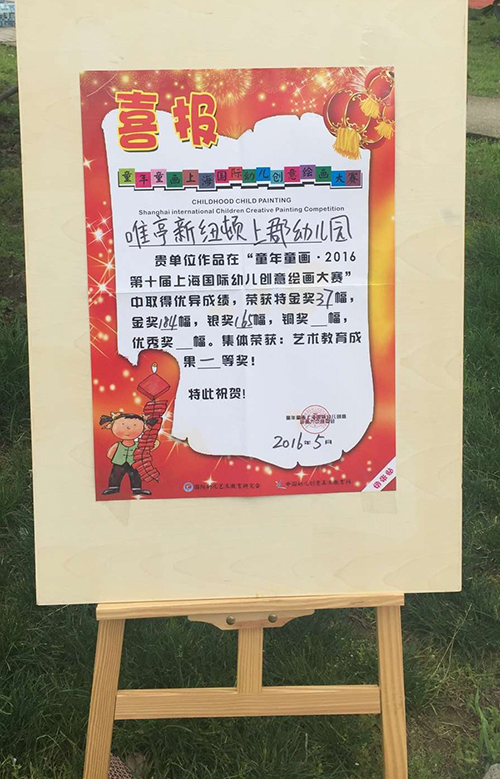 喜报
童年童画上海国际幼儿创意绘画大赛
CHILDHOOD CHILD PAINTING
Shanghai international Children Creative Painting Competition
唯亭新纽顿上郡幼儿园
贵单位作品在“童年童画·2016
第十届上海国际幼儿创意绘画大赛”
中取得优异成绩，荣获特金奖37幅，
金奖184幅，银奖165幅，铜奖__幅，
优秀奖__幅。集体荣获：艺术教育成
果一等奖！
特此祝贺！
2016年5月
国际幼儿艺术教育研究会
中国幼儿创意美术教育网